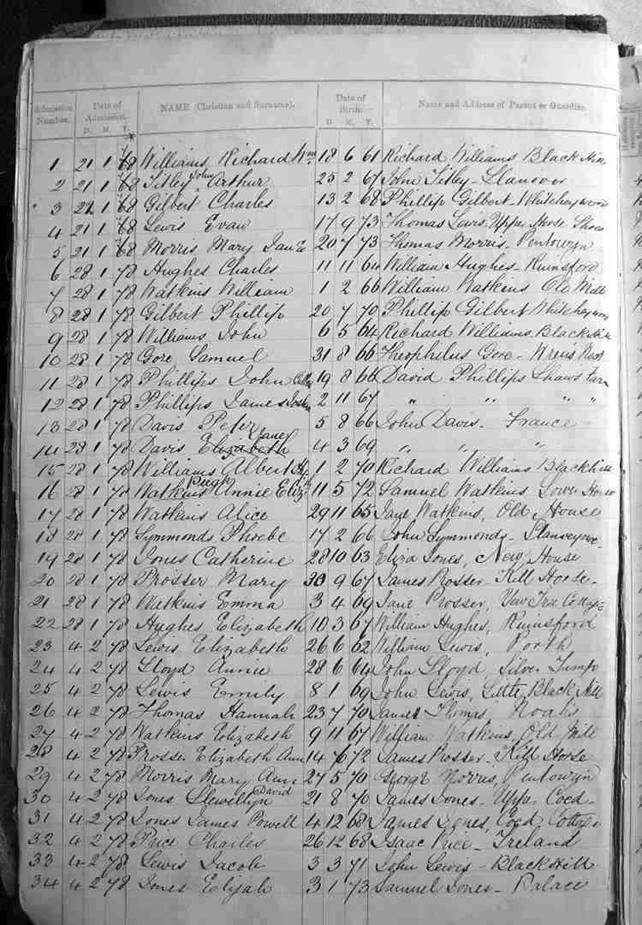 Admission Number. Date of Admission. NAME (Christian and Surname). Date of Birth. Name and Address of Parent or Guardian.
D. M. Y. D. M. Y.
1 21 1 78 Williams Richard Wm 18 6 61 Richard Williams Black
2 21 1 78 Titley John Arthur 25 2 67 John Titley - Llanover
3 21 1 78 Gilbert Charles 13 2 68 Phillip Gilbert
4 21 1 78 Lewis Evan 17 9 73 Thomas Lewis Upper Horse Shoe
5 21 1 78 Morris Mary Jane 20 7 73 Thomas Morris - Pentowyn
6 28 1 78 Hughes Charles 11 11 64 William Hughes - Rumsford
7 28 1 78 Watkins William 1 2 66 William Watkins Old Mill
8 28 1 78 Gilbert Phillip 20 7 70 Phillip Gilbert
9 28 1 78 Williams John 6 5 64 Richard Williams Blackhill
10 28 1 78 Gore Samuel 31 8 66 Theophilus Gore -
11 28 1 78 Phillips John 19 8 66 David Phillips
12 28 1 78 Phillips James 2 11 67 " " " "
13 28 1 78 Davis Peter 5 8 66 John Davis - France
14 28 1 78 Davis Elizabeth Jane 4 3 69 " " "
15 28 1 78 Williams Albert 1 2 70 Richard Williams Blackhill
16 28 1 78 Watkins Pugh Annie Eliz 11 5 72 Samuel Watkins Lower House
17 28 1 78 Watkins Alice 29 11 65 Jane Watkins, Old House
18 28 1 78 Symmonds Phoebe 17 2 66 John Symmonds -
19 28 1 78 Jones Catherine 28 10 63 Eliza Jones, New House
20 28 1 78 Prosser Mary 30 9 67 James Prosser Kill Horse -
21 28 1 78 Watkins Emma 3 4 69 Jane Prosser, Cottage
22 28 1 78 Hughes Elizabeth 10 3 67 William Hughes, Rumsford
23 4 2 78 Lewis Elizabeth 26 6 62 William Lewis, Porth
24 4 2 78 Lloyd Annie 28 6 64 John Lloyd Silver Jump
25 4 2 78 Lewis Emily 8 1 69 John Lewis, Little Black Hill
26 4 2 78 Thomas Hannah 23 7 70 James Thomas,
27 4 2 78 Watkins Elizabeth 9 11 67 William Watkins, Old Mill
28 4 2 78 Prosser Elizabeth Ann 14 72 James Prosser - Kill Horse
29 4 2 78 Morris Mary Ann 27 5 70 George Morris, Pentowyn
30 4 2 78 Jones Llewellyn David 21 8 70 James Jones - Upper Coed
31 4 2 78 Jones James Powell 4 12 68 James Jones, Coed Cottage
32 4 2 78 Price Charles 26 12 68 Isaac Price - Ireland
33 4 2 78 Lewis Jacob 3 3 71 John Lewis - Black Hill
34 4 2 78 Jones Elijah 3 1 73 Samuel Jones - Palace